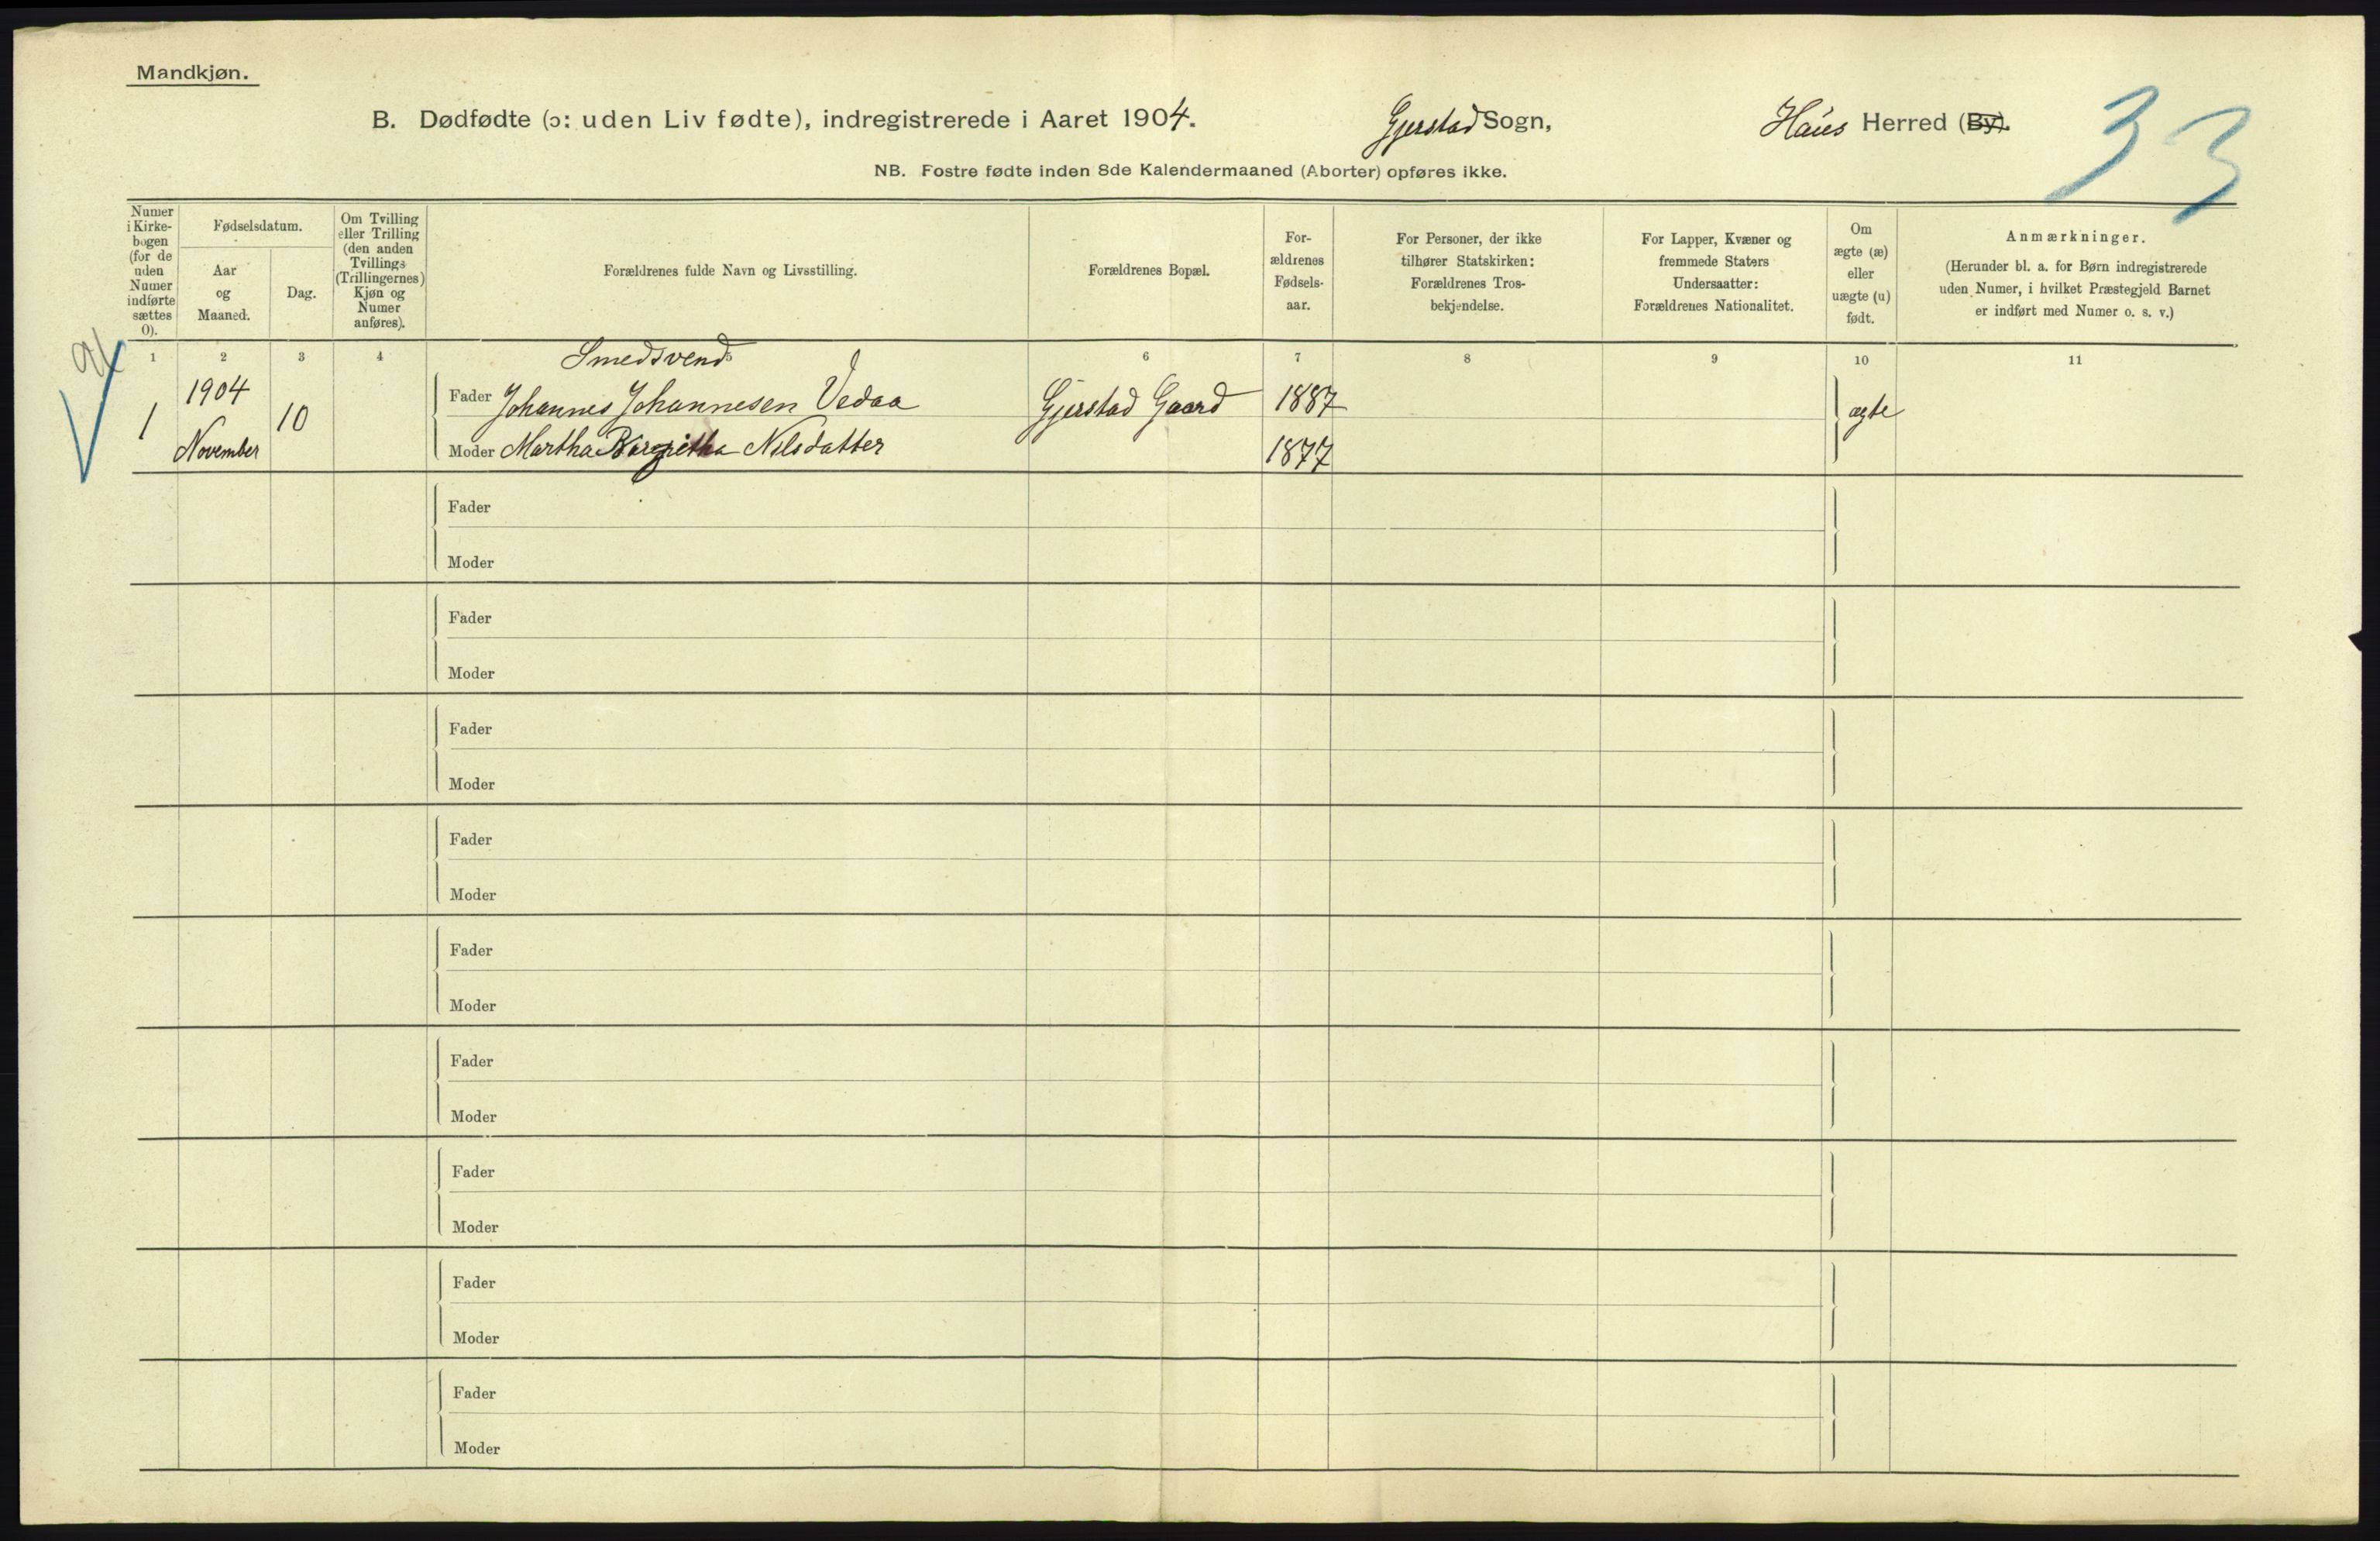 Mandkjøn.
B. Dødfødte (ɔ: uden Liv fødte), indregistrerede i Aaret 1904. Gjerstad Sogn, Haus Herred (By).
33
NB. Fostre fødte inden 8de Kalendermaaned (Aborter) opføres ikke.
Numer
i Kirke-
bogen
(for de
uden
Numer
indførte
sættes
0).
Fødselsdatum.
Aar
og
Maaned.
Dag.
Om Tvilling
eller Trilling
(den anden
Tvillings
(Trillingernes)
Kjøn og
Numer
anføres).
Forældrenes fulde Navn og Livsstilling.
Forældrenes Bopæl.
For-
ældrenes
Fødsels-
aar.
For Personer, der ikke
tilhører Statskirken:
Forældrenes Tros-
bekjendelse.
For Lapper, Kvæner og
fremmede Staters
Undersaatter:
Forældrenes Nationalitet.
Om
ægte (æ)
eller
uægte (u)
født.
Anmærkninger.
(Herunder bl. a. for Børn indregistrerede
uden Numer, i hvilket Præstegjeld Barnet
er indført med Numer o. s. v.)
1 2 3 4 5 6 7 8 9 10 11
Smedsvend
1904
Fader Johannes Johannesen Vedaa Gjerstad Gaard 1887
1 10 ægte
November
Moder Martha Nilsdatter 1877
Fader
Moder
Fader
Moder
Fader
Moder
Fader
Moder
Fader
Moder
Fader
Moder
Fader
Moder
Fader
Moder
Fader
Moder